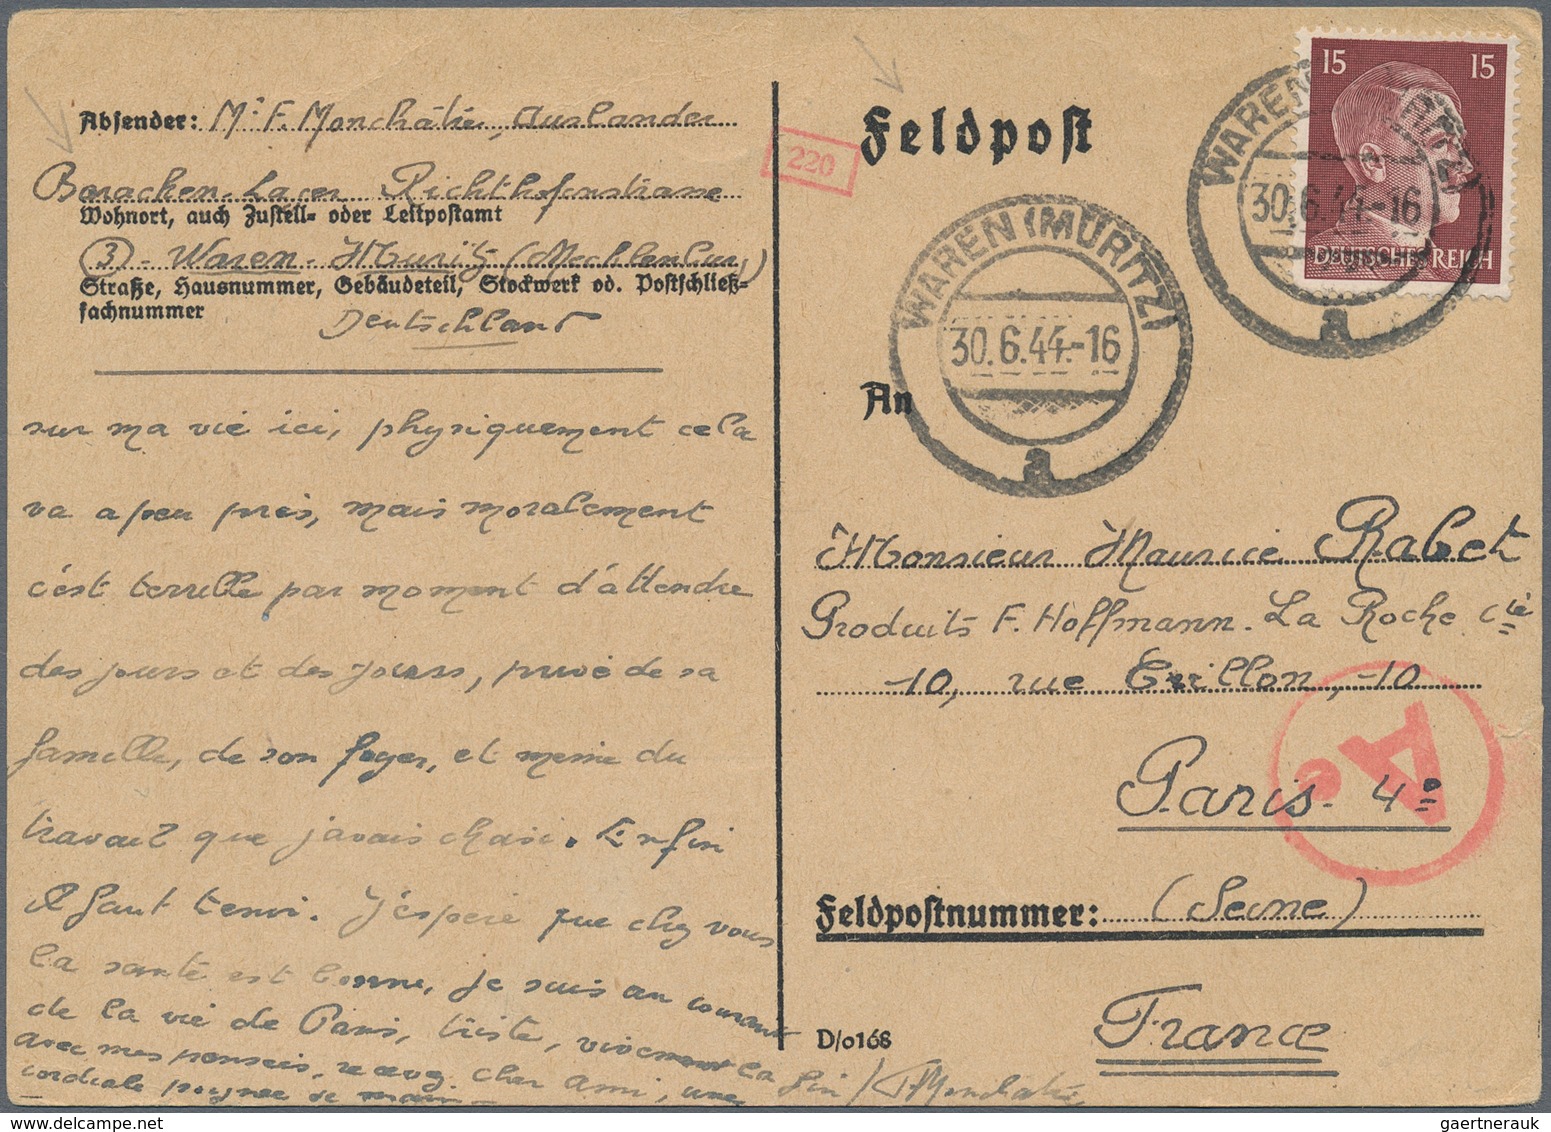 Absender: Mr F. Monchâtre, Auslander
Baracken-Lager Richthofenstrasse
Wohnort, auch Zustell- oder Leitpostamt
(3) - Waren - Muritz (Mecklenburg)
Straße, Hausnummer, Gebäudeteil, Stockwerk od. Postschließ-
fachnummer
Deutschland
sur ma vie ici, physiquement cela
va a peu près, mais moralement
c'est terrible par moment d'attendre
des jours et des jours, privé de sa
famille, de son foyer, et meme du
travail que j'avais choisi. Enfin
il faut tenir. J'espère que chez vous
la santé est bonne, je suis au courant
de la vie de Paris, triste, vivement la fin
avec mes pensées, recevez cher ami, une
cordiale poignée de main
Feldpost
220
15 15
DEUTSCHES REICH
WAREN (MÜRITZ)
30.6.44.-16
a
WAREN (MÜRITZ)
30.6.44.-16
a
An
Monsieur Maurice Rabet
Produits F. Hoffmann. La Roche Cie
-10, rue Crillon, -10
Paris - 4e
Ae
Feldpostnummer: (Seine)
France
D/0168
gaertnerauk